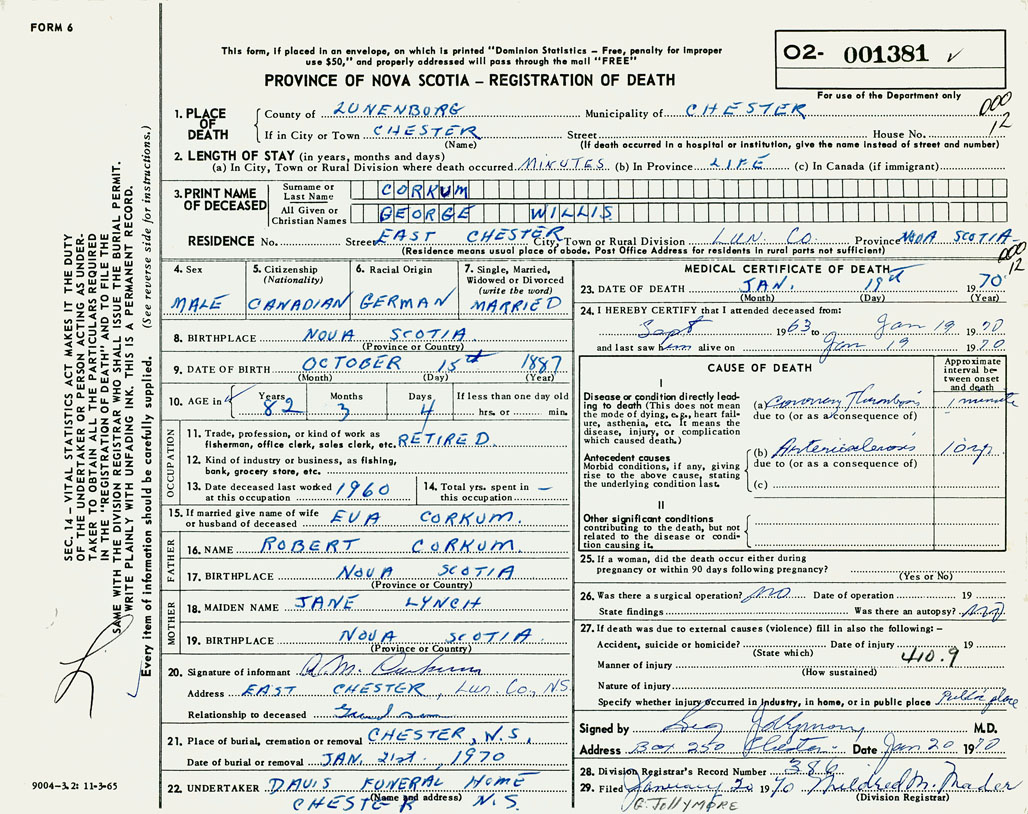 FORM 6
This form, if placed in an envelope, on which is printed "Dominion Statistics – Free, penalty for improper
use $50," and properly addressed will pass through the mail "FREE"
PROVINCE OF NOVA SCOTIA – REGISTRATION OF DEATH
02- 001381
For use of the Department only
000
12
1. PLACE OF DEATH
County of LUNENBORG Municipality of CHESTER
If in City or Town CHESTER Street House No.
(Name) (If death occurred in a hospital or institution, give the name instead of street and number)
2. LENGTH OF STAY (in years, months and days)
(a) In City, Town or Rural Division where death occurred MINUTES (b) In Province LIFE (c) In Canada (if immigrant)
3. PRINT NAME OF DECEASED
Surname or Last Name CORKUM
All Given or Christian Names GEORGE WILLIS
RESIDENCE No. Street EAST CHESTER City, Town or Rural Division LUN CO. Province NOVA SCOTIA
(Residence means usual place of abode. Post Office Address for residents in rural parts not sufficient)
000
12
4. Sex MALE
5. Citizenship (Nationality) CANADIAN
6. Racial Origin GERMAN
7. Single, Married, Widowed or Divorced (write the word) MARRIED
8. BIRTHPLACE NOVA SCOTIA
(Province or Country)
9. DATE OF BIRTH OCTOBER 15th 1887
(Month) (Day) (Year)
10. AGE in Years 82 Months 3 Days 4 If less than one day old hrs. or min.
OCCUPATION
11. Trade, profession, or kind of work as
fisherman, office clerk, sales clerk, etc. RETIRED.
12. Kind of industry or business, as fishing,
bank, grocery store, etc.
13. Date deceased last worked at this occupation 1960
14. Total yrs. spent in this occupation –
15. If married give name of wife or husband of deceased EVA CORKUM.
FATHER
16. NAME ROBERT CORKUM.
17. BIRTHPLACE NOVA SCOTIA
(Province or Country)
MOTHER
18. MAIDEN NAME JANE LYNCH
19. BIRTHPLACE NOVA SCOTIA.
(Province or Country)
20. Signature of informant
Address EAST CHESTER, Lun. Co., NS
Relationship to deceased
21. Place of burial, cremation or removal CHESTER, N.S.
Date of burial or removal JAN. 21st, 1970
22. UNDERTAKER DAVIS FUNERAL HOME
(Name and address)
CHESTER N.S.
MEDICAL CERTIFICATE OF DEATH
23. DATE OF DEATH JAN. 19th 1970
(Month) (Day) (Year)
24. I HEREBY CERTIFY that I attended deceased from:
Sept 1963 to Jan 19 1970
and last saw him alive on Jan 19 1970
CAUSE OF DEATH
Approximate interval between onset and death
I
Disease or condition directly leading to death (This does not mean the mode of dying, e.g., heart failure, asthenia, etc. It means the disease, injury, or complication which caused death.)
(a) Coronary Thrombosis 1 minute
due to (or as a consequence of)
Antecedent causes
Morbid conditions, if any, giving rise to the above cause, stating the underlying condition last.
(b) Arteriosclerosis 10 yr
due to (or as a consequence of)
(c)
II
Other significant conditions
contributing to the death, but not related to the disease or condition causing it.
25. If a woman, did the death occur either during
pregnancy or within 90 days following pregnancy?
(Yes or No)
26. Was there a surgical operation? no Date of operation 19
State findings Was there an autopsy? no
27. If death was due to external causes (violence) fill in also the following: –
Accident, suicide or homicide? Date of injury 19
(State which) 410.9
Manner of injury
(How sustained)
Nature of injury
Specify whether injury occurred in Industry, in home, or in public place Public place
Signed by M.D.
Address Box 250 Chester Date Jan 20 1970
28. Division Registrar's Record Number 386
29. Filed January 20 1970 Mildred M. Mader
(Division Registrar)
G. JOLLYMORE
SEC. 14 – VITAL STATISTICS ACT MAKES IT THE DUTY
OF THE UNDERTAKER OR PERSON ACTING AS UNDER-
TAKER TO OBTAIN ALL THE PARTICULARS REQUIRED
IN THE "REGISTRATION OF DEATH" AND TO FILE THE
SAME WITH THE DIVISION REGISTRAR WHO SHALL ISSUE THE BURIAL PERMIT.
WRITE PLAINLY WITH UNFADING INK. THIS IS A PERMANENT RECORD.
Every item of information should be carefully supplied. (See reverse side for instructions.)
9004-3.2: 11-3-65